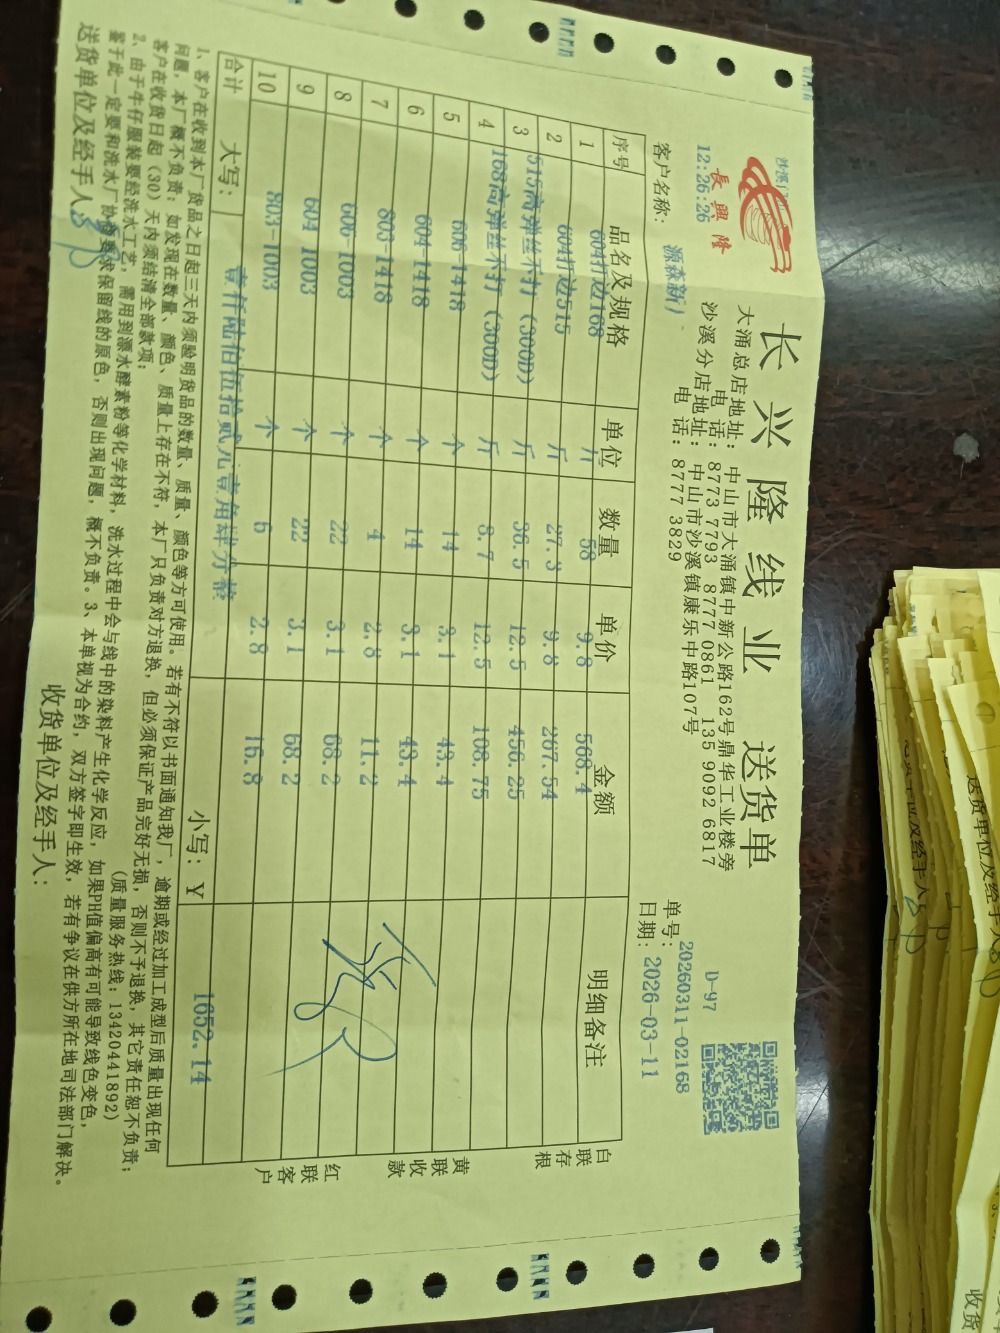 長興隆
12:26:26
长兴隆线业 送货单
大涌总店地址： 中山市大涌镇中新公路162号鼎华工业楼旁
电 话： 8773 7793 8777 0861 135 9092 6817
沙溪分店地址： 中山市沙溪镇康乐中路107号
电 话： 8777 3829
D-97
单号： 20260311-02168
客户名称： 源森新） 日期： 2026-03-11
序号 品名及规格 单位 数量 单价 金额 明细备注
1 604打边168 斤 58 9.8 568.4
2 604打边515 斤 27.3 9.8 267.54
3 515高弹丝不打（300D） 斤 36.5 12.5 456.25
4 168高弹丝不打（300D） 斤 8.7 12.5 108.75
5 606-1418 个 14 3.1 43.4
6 604-1418 个 14 3.1 43.4
7 803-1418 个 4 2.8 11.2
8 606-1003 个 22 3.1 68.2
9 604-1003 个 22 3.1 68.2
10 803-1003 个 6 2.8 16.8
合计 大写： 壹仟陆佰伍拾贰元壹角肆分整 小写：￥ 1652.14
白联存根
黄联收款
红联客户
1、客户在收到本厂货品之日起三天内须验明货品的数量、质量、颜色等方可使用。若有不符以书面通知我厂，逾期或经过加工成型后质量出现任何
问题，本厂概不负责；如发现在数量、颜色、质量上存在不符，本厂只负责对方退换，但必须保证产品完好无损，否则不予退换，其它责任恕不负责；
客户在收货日起（30）天内须结清全部款项； （质量服务热线：13420441892）
2、由于牛仔服装要经洗水工艺，需用到漂水酵素粉等化学材料，洗水过程中会与线中的染料产生化学反应，如果PH值偏高有可能导致线色变色，
鉴于此一定要和洗水厂协商要求保留线的原色，否则出现问题，概不负责。3、本单视为合约，双方签字即生效，若有争议在供方所在地司法部门解决。
送货单位及经手人： 收货单位及经手人：
送货单位及经手人
收货